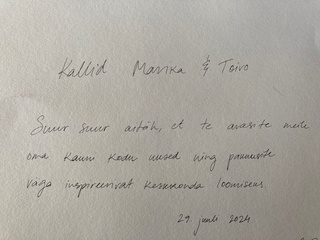 Kallid Marika & Toivo
Suur suur aitäh, et te avasite meile
oma kauni kodu uksed ning pakkusite
väga inspireerivat keskkonda loomiseks.
29. juuli 2024